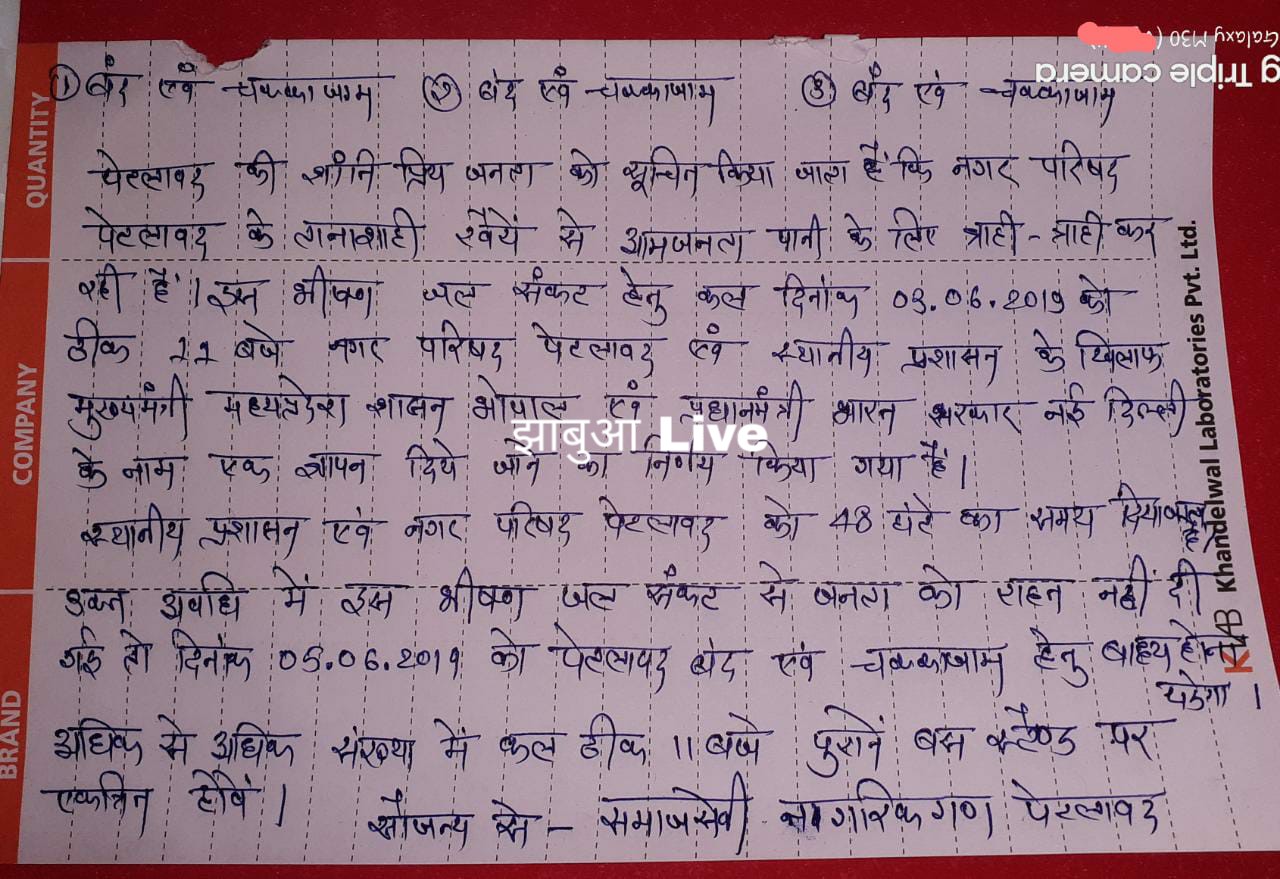 Galaxy M30
g Triple camera
① बंद एवं चक्काजाम ② बंद एवं चक्काजाम ③ बंद एवं चक्काजाम
पेटलावद की शांति प्रिय जनता को सूचित किया जाता है कि नगर परिषद
पेटलावद के तानाशाही रवैयें से आमजनता पानी के लिए त्राही - त्राही कर
रही है। इस भीषण जल संकट हेतु कल दिनांक 03.06.2019 को
ठीक 11 बजे नगर परिषद पेटलावद एवं स्थानीय प्रशासन के खिलाफ
मुख्यमंत्री मध्यप्रदेश शासन भोपाल एवं प्रधानमंत्री भारत सरकार नई दिल्ली
के नाम एक ज्ञापन दिये जाने का निर्णय किया गया है।
स्थानीय प्रशासन एवं नगर परिषद पेटलावद को 48 घंटे का समय
उक्त अवधि में इस भीषण जल संकट से जनता को राहत नहीं दी
गई तो दिनांक 05.06.2019 को पेटलावद बंद एवं चक्काजाम हेतु बाध्य होना
पडेगा।
अधिक से अधिक संख्या में कल ठीक 11 बजे पुरानें बस स्टैण्ड पर
एकत्रित होवें।
सौजन्य से - समाजसेवी नागरिकगण पेटलावद
झाबुआ Live
QUANTITY
COMPANY
BRAND
KLAB Khandelwal Laboratories Pvt. Ltd.